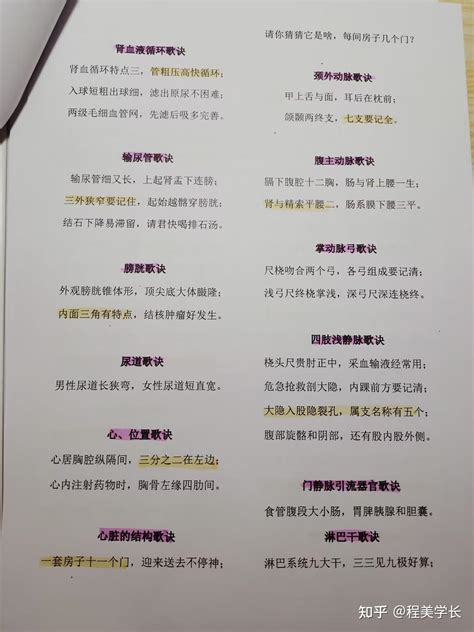 肾血液循环歌诀
肾血循环特点三，管粗压高快循环；
入球短粗出球细，滤出原尿不困难；
两级毛细血管网，先滤后吸多完善。
输尿管歌诀
输尿管细又长，上起肾盂下连膀；
三外狭窄要记住，起始越髂穿膀胱；
结石下降易滞留，请君快喝排石汤。
膀胱歌诀
外观膀胱锥体形，顶尖底大体臌隆；
内面三角有特点，结核肿瘤好发生。
尿道歌诀
男性尿道长狭弯，女性尿道短直宽。
心、位置歌诀
心居胸腔纵隔间，三分之二在左边；
心内注射药物时，胸骨左缘四肋间。
心脏的结构歌诀
一套房子十一个门，迎来送去不停神；
请你猜猜它是啥，每间房子几个门？
颈外动脉歌诀
甲上舌与面，耳后在枕前；
颌颞两终支，七支要记全。
腹主动脉歌诀
膈下腹腔十二胸，肠与肾上腰一生；
肾与精索平腰二，肠系膜下腰三平。
掌动脉歌诀
尺桡吻合两个弓，各弓组成要记清；
浅弓尺终桡掌浅，深弓尺深连桡终。
四肢浅静脉歌诀
桡头尺贵肘正中，采血输液经常用；
危急抢救剖大隐，内踝前方要记清；
大隐入股隐裂孔，属支名称有五个；
腹部旋髂和阴部，还有股内股外侧。
门静脉引流器官歌诀
食管腹段大小肠，胃脾胰腺和胆囊。
淋巴干歌诀
淋巴系统九大干，三三见九极好算；
知乎 @程美学长